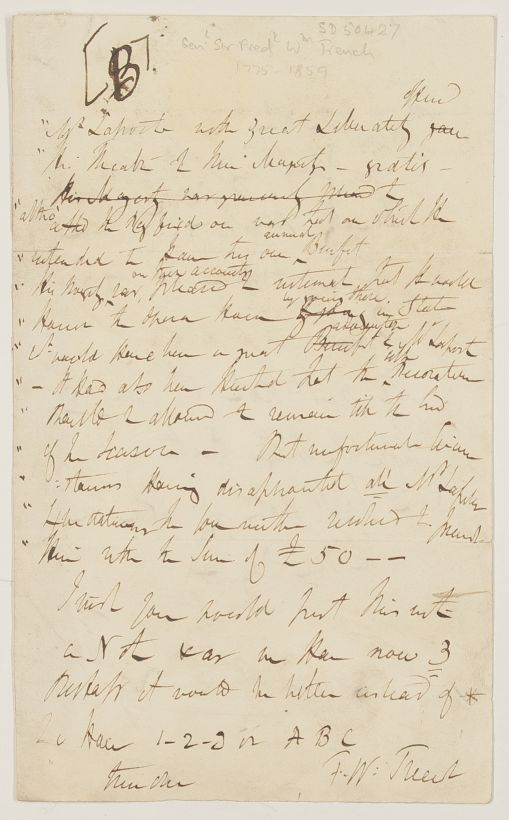 [B]
SD50427
Genl Sir Fredk Wm Trench
1775-1859
offered
"Mr Laporte with great Liberality gave
"His Theatre of His Majesty - gratis -
His Majesty was graciously pleased to
"altho' the fixed on was that on which He
"intended to have his own annual Benefit
"His Majesty was on this account pleased to intimate that He would
"Honor the Opera House by going there in State
"It would have been a great advantage to Mr Laporte
"- It had also been that all the Decorations
"should be allowed to remain till the End
"of the Season - But unfortunate Circum
"stances Having disappointed all Mr Laporte
"Expectations the Committee resolved to present
"Him with the Sum of £50 --
I wish you would put this into
a Note &as we Have now 3
Perhaps it would be better instead of *
to Have 1-2-3 or A B C
F. W. Trench